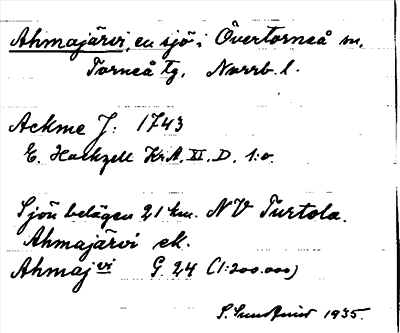 Ahmajärvi, en sjö i Övertorneå sn,
Torneå tg, Norrb. l.
Ackme J: 1743
E. Hackzell KrA. XI. D. 1:o.
Sjön belägen 21 km. NV Turtola.
Ahmajärvi ek.
Ahmajvi G 24 (1:200.000)
1935.